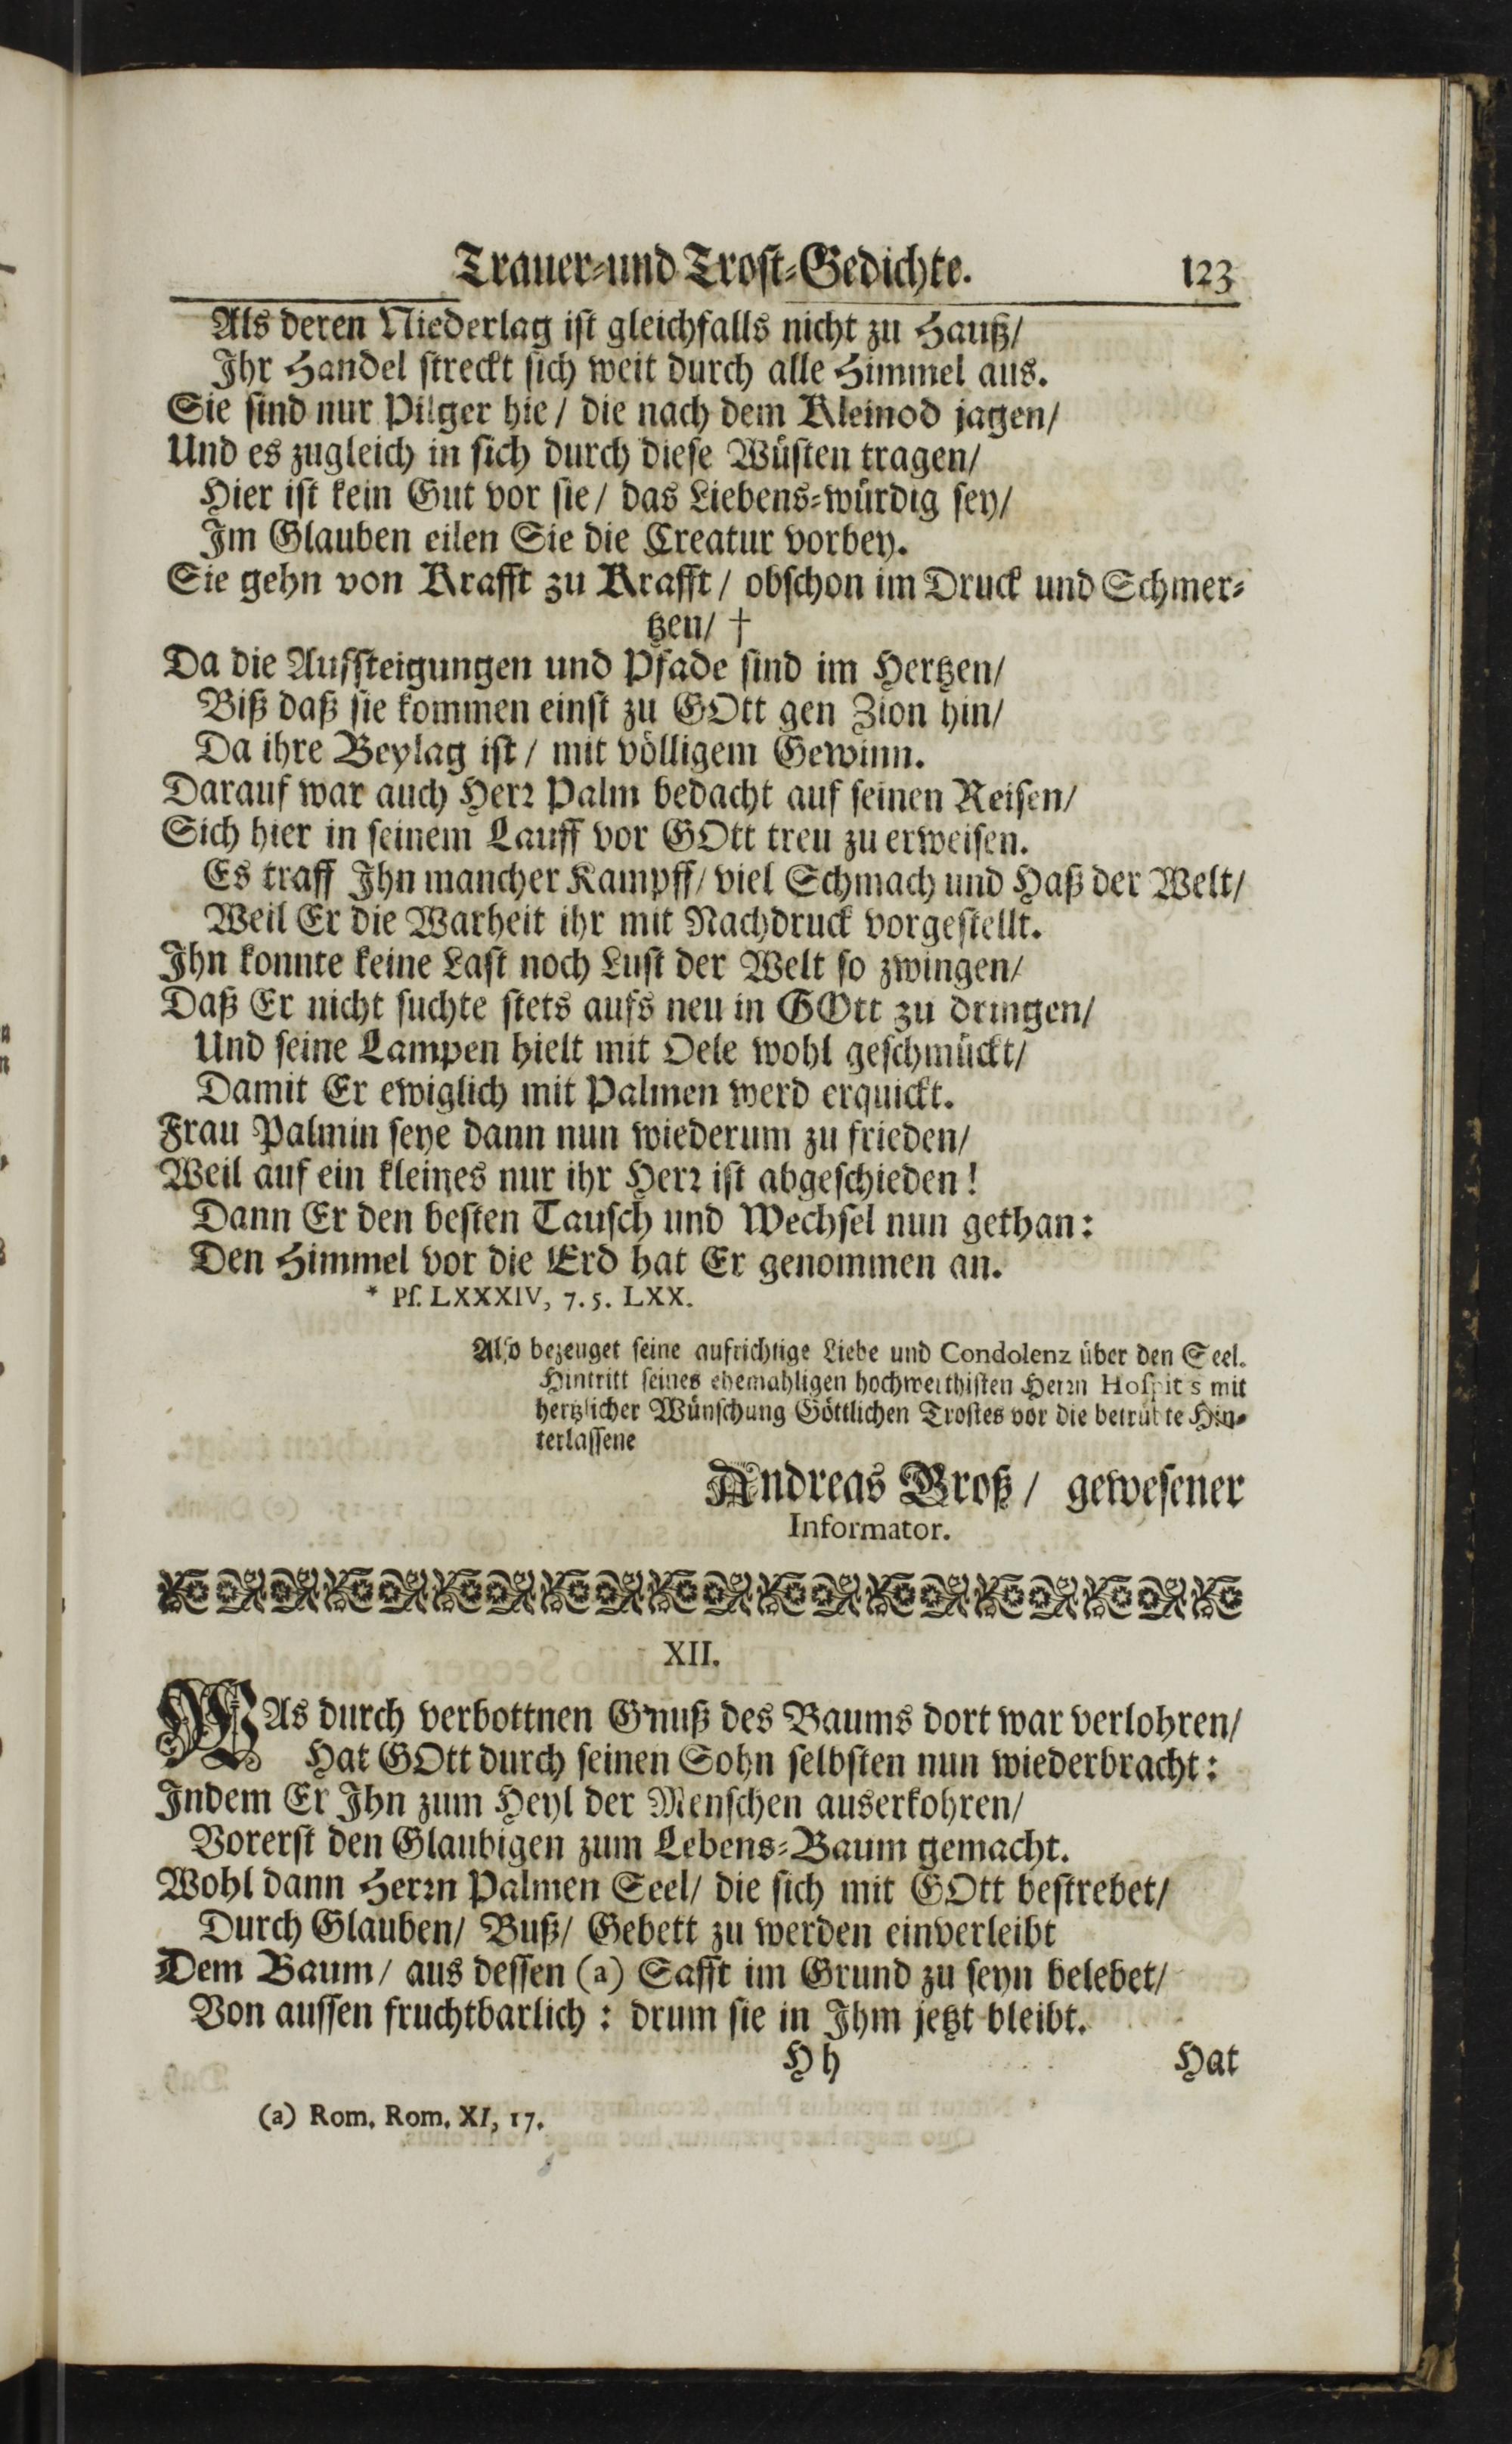 Trauer-und Trost-Gedichte. 123
Als deren Niederlag ist gleichfalls nicht zu Hauß/
Ihr Handel streckt sich weit durch alle Himmel aus.
Sie sind nur Pilger hie / die nach dem Kleinod jagen/
Und es zugleich in sich durch diese Wüsten tragen/
Hier ist kein Gut vor sie / das Liebens-würdig sey/
Im Glauben eilen Sie die Creatur vorbey.
Sie gehn von Krafft zu Krafft / obschon im Druck und Schmer-
tzen/ †
Da die Aufsteigungen und Pfade sind im Hertzen/
Biß daß sie kommen einst zu GOtt gen Zion hin/
Da ihre Beylag ist / mit völligem Gewinn.
Darauf war auch Herr Palm bedacht auf seinen Reisen/
Sich hier in seinem Lauff vor GOtt treu zu erweisen.
Es traff Ihn mancher Kampff/ viel Schmach und Haß der Welt/
Weil Er die Warheit ihr mit Nachdruck vorgestellt.
Ihn konnte keine Last noch Lust der Welt so zwingen/
Daß Er nicht suchte stets aufs neu in GOtt zu dringen/
Und seine Lampen hielt mit Oele wohl geschmückt/
Damit Er ewiglich mit Palmen werd erquickt.
Frau Palmin seye dann nun wiederum zu frieden/
Weil auf ein kleines nur ihr Herr ist abgeschieden!
Dann Er den besten Tausch und Wechsel nun gethan:
Den Himmel vor die Erd hat Er genommen an.
* Ps. LXXXIV, 7. 5. LXX.
Also bezeuget seine aufrichtige Liebe und Condolenz über den Seel.
Hintritt seines ehemahligen hochwerthisten Herrn Hospitis mit
hertzlicher Wünschung Göttlichen Trostes vor die betrübte Hin-
terlassene
Andreas Groß / gewesener
Informator.
XII.
WAs durch verbottnen G'nuß des Baums dort war verlohren/
Hat GOtt durch seinen Sohn selbsten nun wiederbracht:
Indem Er Ihn zum Heyl der Menschen auserkohren/
Vorerst den Glaubigen zum Lebens-Baum gemacht.
Wohl dann Herrn Palmen Seel/ die sich mit GOtt bestrebet/
Durch Glauben/ Buß/ Gebett zu werden einverleibt
Dem Baum / aus dessen (a) Safft im Grund zu seyn belebet/
Von aussen fruchtbarlich : drum sie in Ihm jetzt bleibt.
Hh Hat
(a) Rom. Rom. XI, 17.